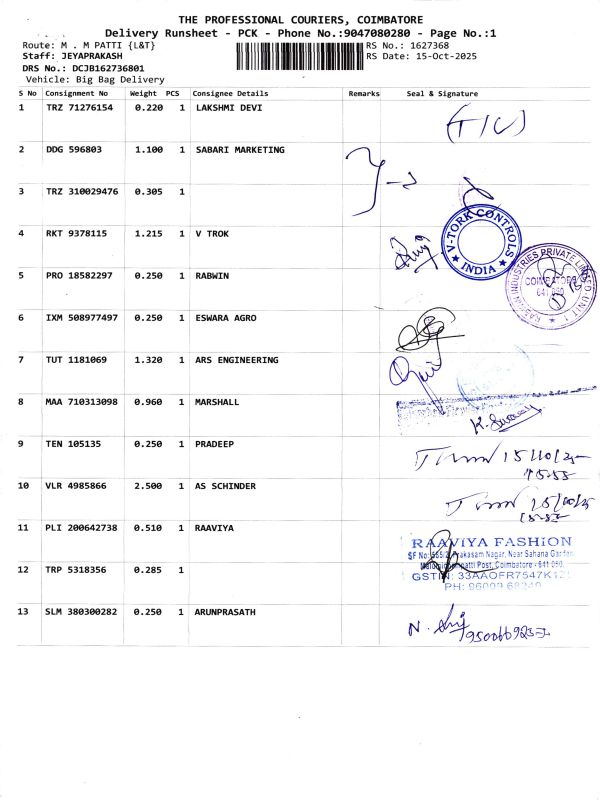 THE PROFESSIONAL COURIERS, COIMBATORE
Delivery Runsheet - PCK - Phone No.:9047080280 - Page No.:1
Route: M . M PATTI {L&T}
RS No.: 1627368
Staff: JEYAPRAKASH
RS Date: 15-Oct-2025
DRS No.: DCJB162736801
Vehicle: Big Bag Delivery
S No Consignment No Weight PCS Consignee Details Remarks Seal & Signature
1 TRZ 71276154 0.220 1 LAKSHMI DEVI
2 DDG 596803 1.100 1 SABARI MARKETING
3 TRZ 310029476 0.305 1
4 RKT 9378115 1.215 1 V TROK
V-TORK CONTROLS
INDIA
5 PRO 18582297 0.250 1 RABWIN
INDUSTRIES PRIVATE LIMITED UNIT
6 IXM 508977497 0.250 1 ESWARA AGRO
7 TUT 1181069 1.320 1 ARS ENGINEERING
8 MAA 710313098 0.960 1 MARSHALL
9 TEN 105135 0.250 1 PRADEEP
15/10/25
10 VLR 4985866 2.500 1 AS SCHINDER
11 PLI 200642738 0.510 1 RAAVIYA
RAAVIYA FASHION
Nagar, Near Sahana Garden
Post, Coimbatore - 641
12 TRP 5318356 0.285 1
GSTIN: 33AAOFR7547K1
PH:
13 SLM 380300282 0.250 1 ARUNPRASATH
N.